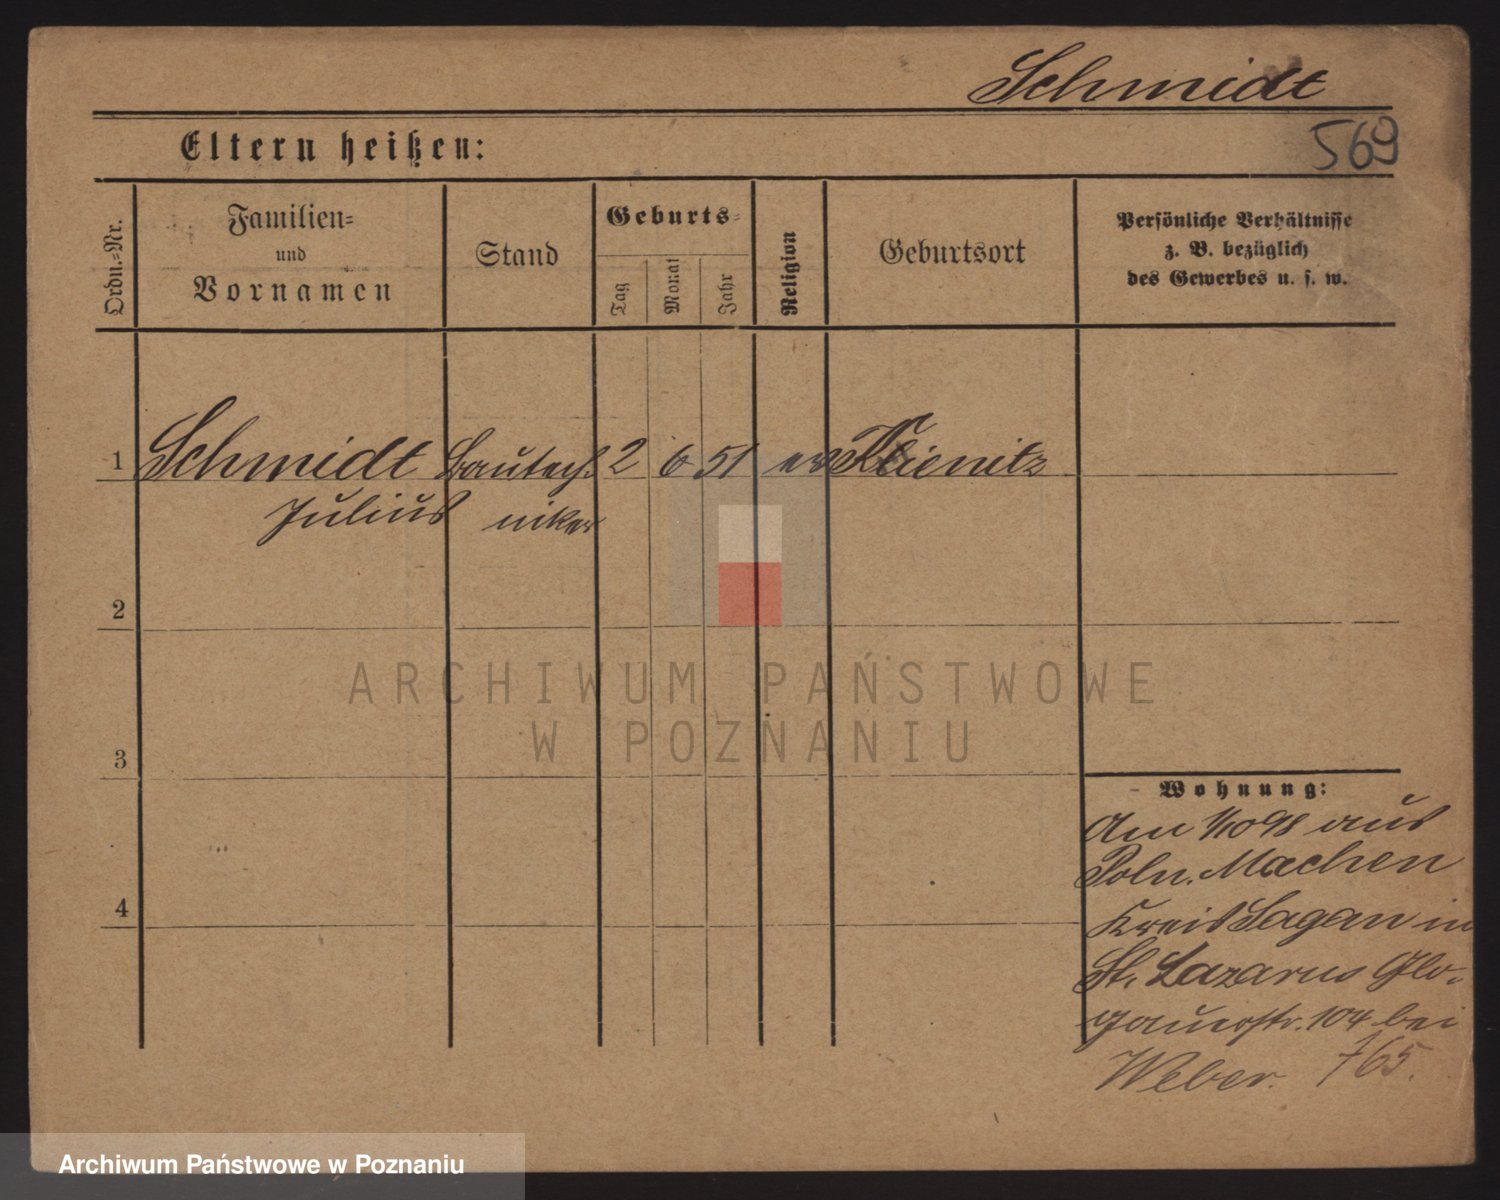 Schmidt
Eltern heißen:
569
Ordn.=Nr.
Familien=
und
Vornamen
Stand
Geburts=
Tag
Monat
Jahr
Religion
Geburtsort
Persönliche Verhältnisse
z. B. bezüglich
des Gewerbes u. s. w.
1 Schmidt Bautech- 2 6 51 ev Kienitz
Julius niker
2
ARCHIWUM PAŃSTWOWE
W POZNANIU
3
Wohnung:
Am 1/10 98 aus
Poln. Machen
Kreis Sagan in
St. Lazarus Glo-
gauerstr. 104 bei
Weber. 765.
4
Archiwum Państwowe w Poznaniu